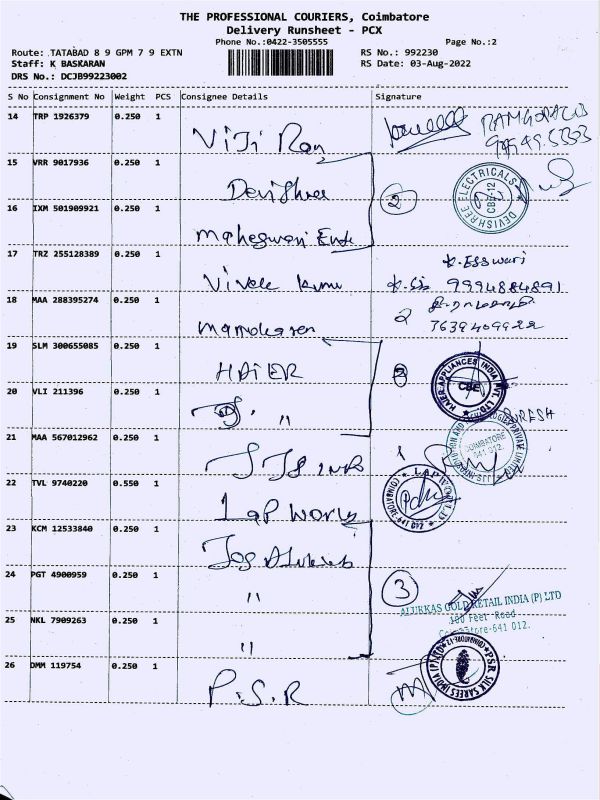 THE PROFESSIONAL COURIERS, Coimbatore
Delivery Runsheet - PCX
Phone No.:0422-3505555
Page No.:2
Route: TATABAD 8 9 GPM 7 9 EXTN
RS No.: 992230
Staff: K BASKARAN
RS Date: 03-Aug-2022
DRS No.: DCJB99223002
S No Consignment No Weight PCS Consignee Details Signature
14 TRP 1926379 0.250 1
Viji Ram
15 VRR 9017936 0.250 1
Devishree
2
DEVISHREE ELECTRICALS CBE-12
16 IXM 501909921 0.250 1
Maheswari
17 TRZ 255128389 0.250 1
Vivek
K. Esswari
9994884891
18 MAA 288395274 0.250 1
2
7639409922
19 SLM 300655085 0.250 1
HAIER
HAIER APPLIANCES INDIA PVT. LTD CBE
20 VLI 211396 0.250 1
"
SURESH
21 MAA 567012962 0.250 1
1
COIMBATORE 641 012.
22 TVL 9740220 0.550 1
Lap World
23 KCM 12533840 0.250 1
Jos Alukkas
24 PGT 4900959 0.250 1
"
3
ALUKKAS GOLD RETAIL INDIA (P) LTD
100 Feet Road
Coimbatore-641 012.
25 NKL 7909263 0.250 1
"
26 DMM 119754 0.250 1
P.S.R
PSR SILK SAREES INDIA (P) LTD